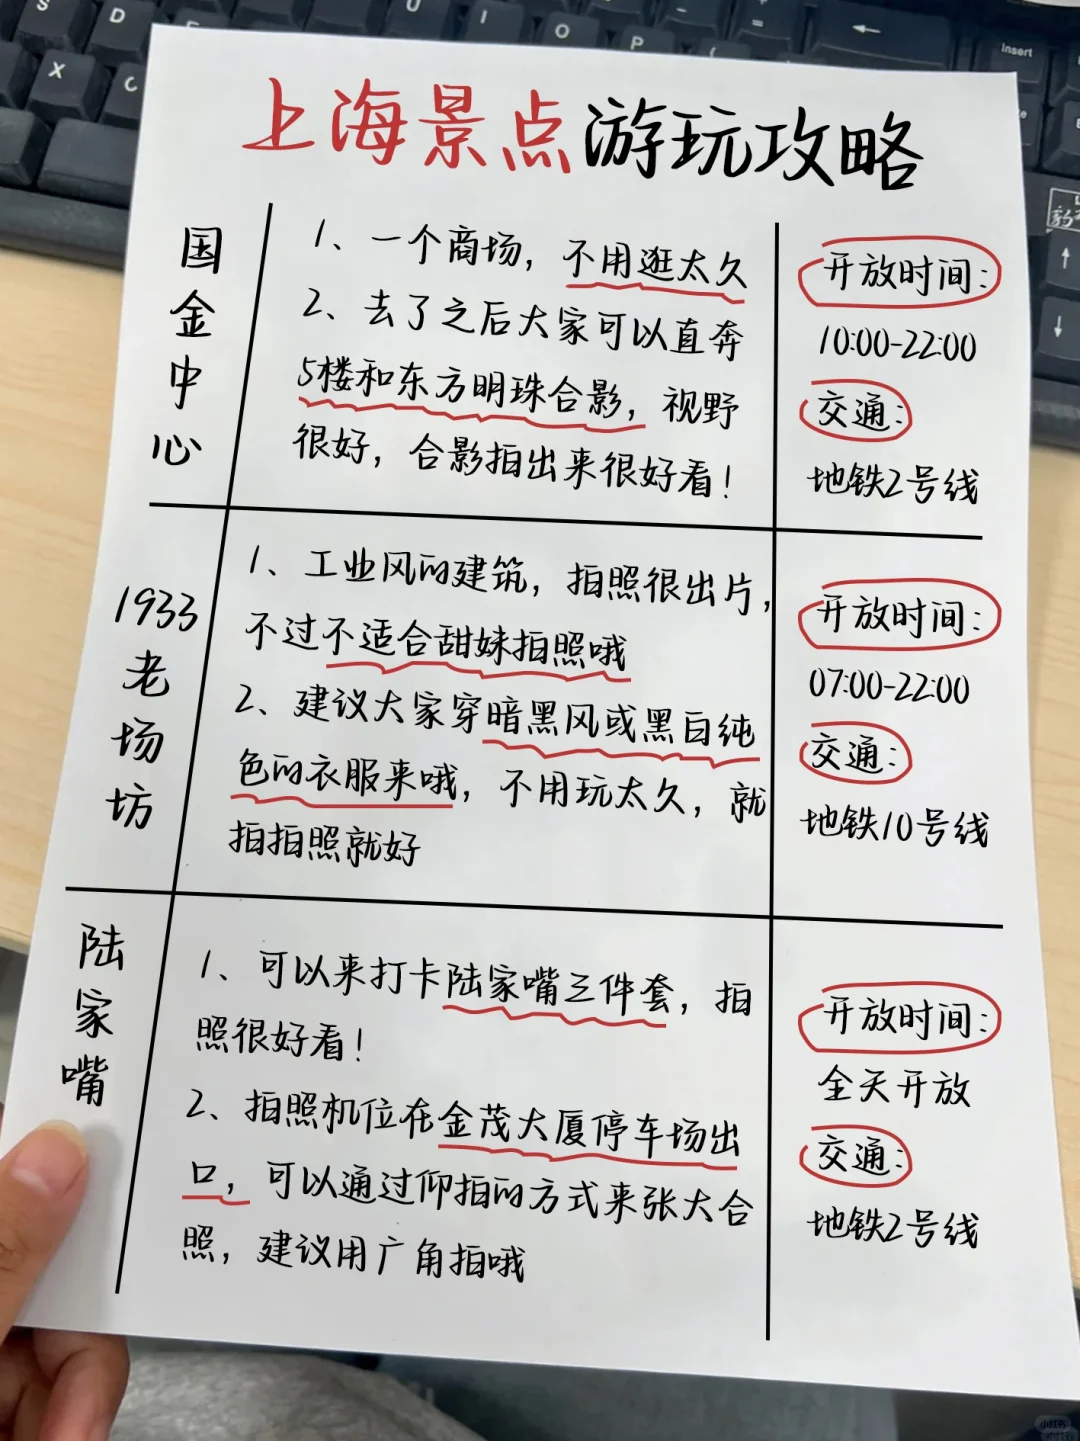 上海景点游玩攻略
国金中心
1、一个商场，不用逛太久
2、去了之后大家可以直奔
5楼和东方明珠合影，视野
很好，合影拍出来很好看！
开放时间：
10:00-22:00
交通：
地铁2号线
1933老场坊
1、工业风的建筑，拍照很出片，
不过不适合甜妹拍照哦
2、建议大家穿暗黑风或黑白纯
色的衣服来哦，不用玩太久，就
拍拍照就好
开放时间：
07:00-22:00
交通：
地铁10号线
陆家嘴
1、可以来打卡陆家嘴三件套，拍
照很好看！
2、拍照机位在金茂大厦停车场出
口，可以通过仰拍的方式来张大合
照，建议用广角拍哦
开放时间：
全天开放
交通：
地铁2号线
S
D
X
C
U
I
O
P
Insert
小红书